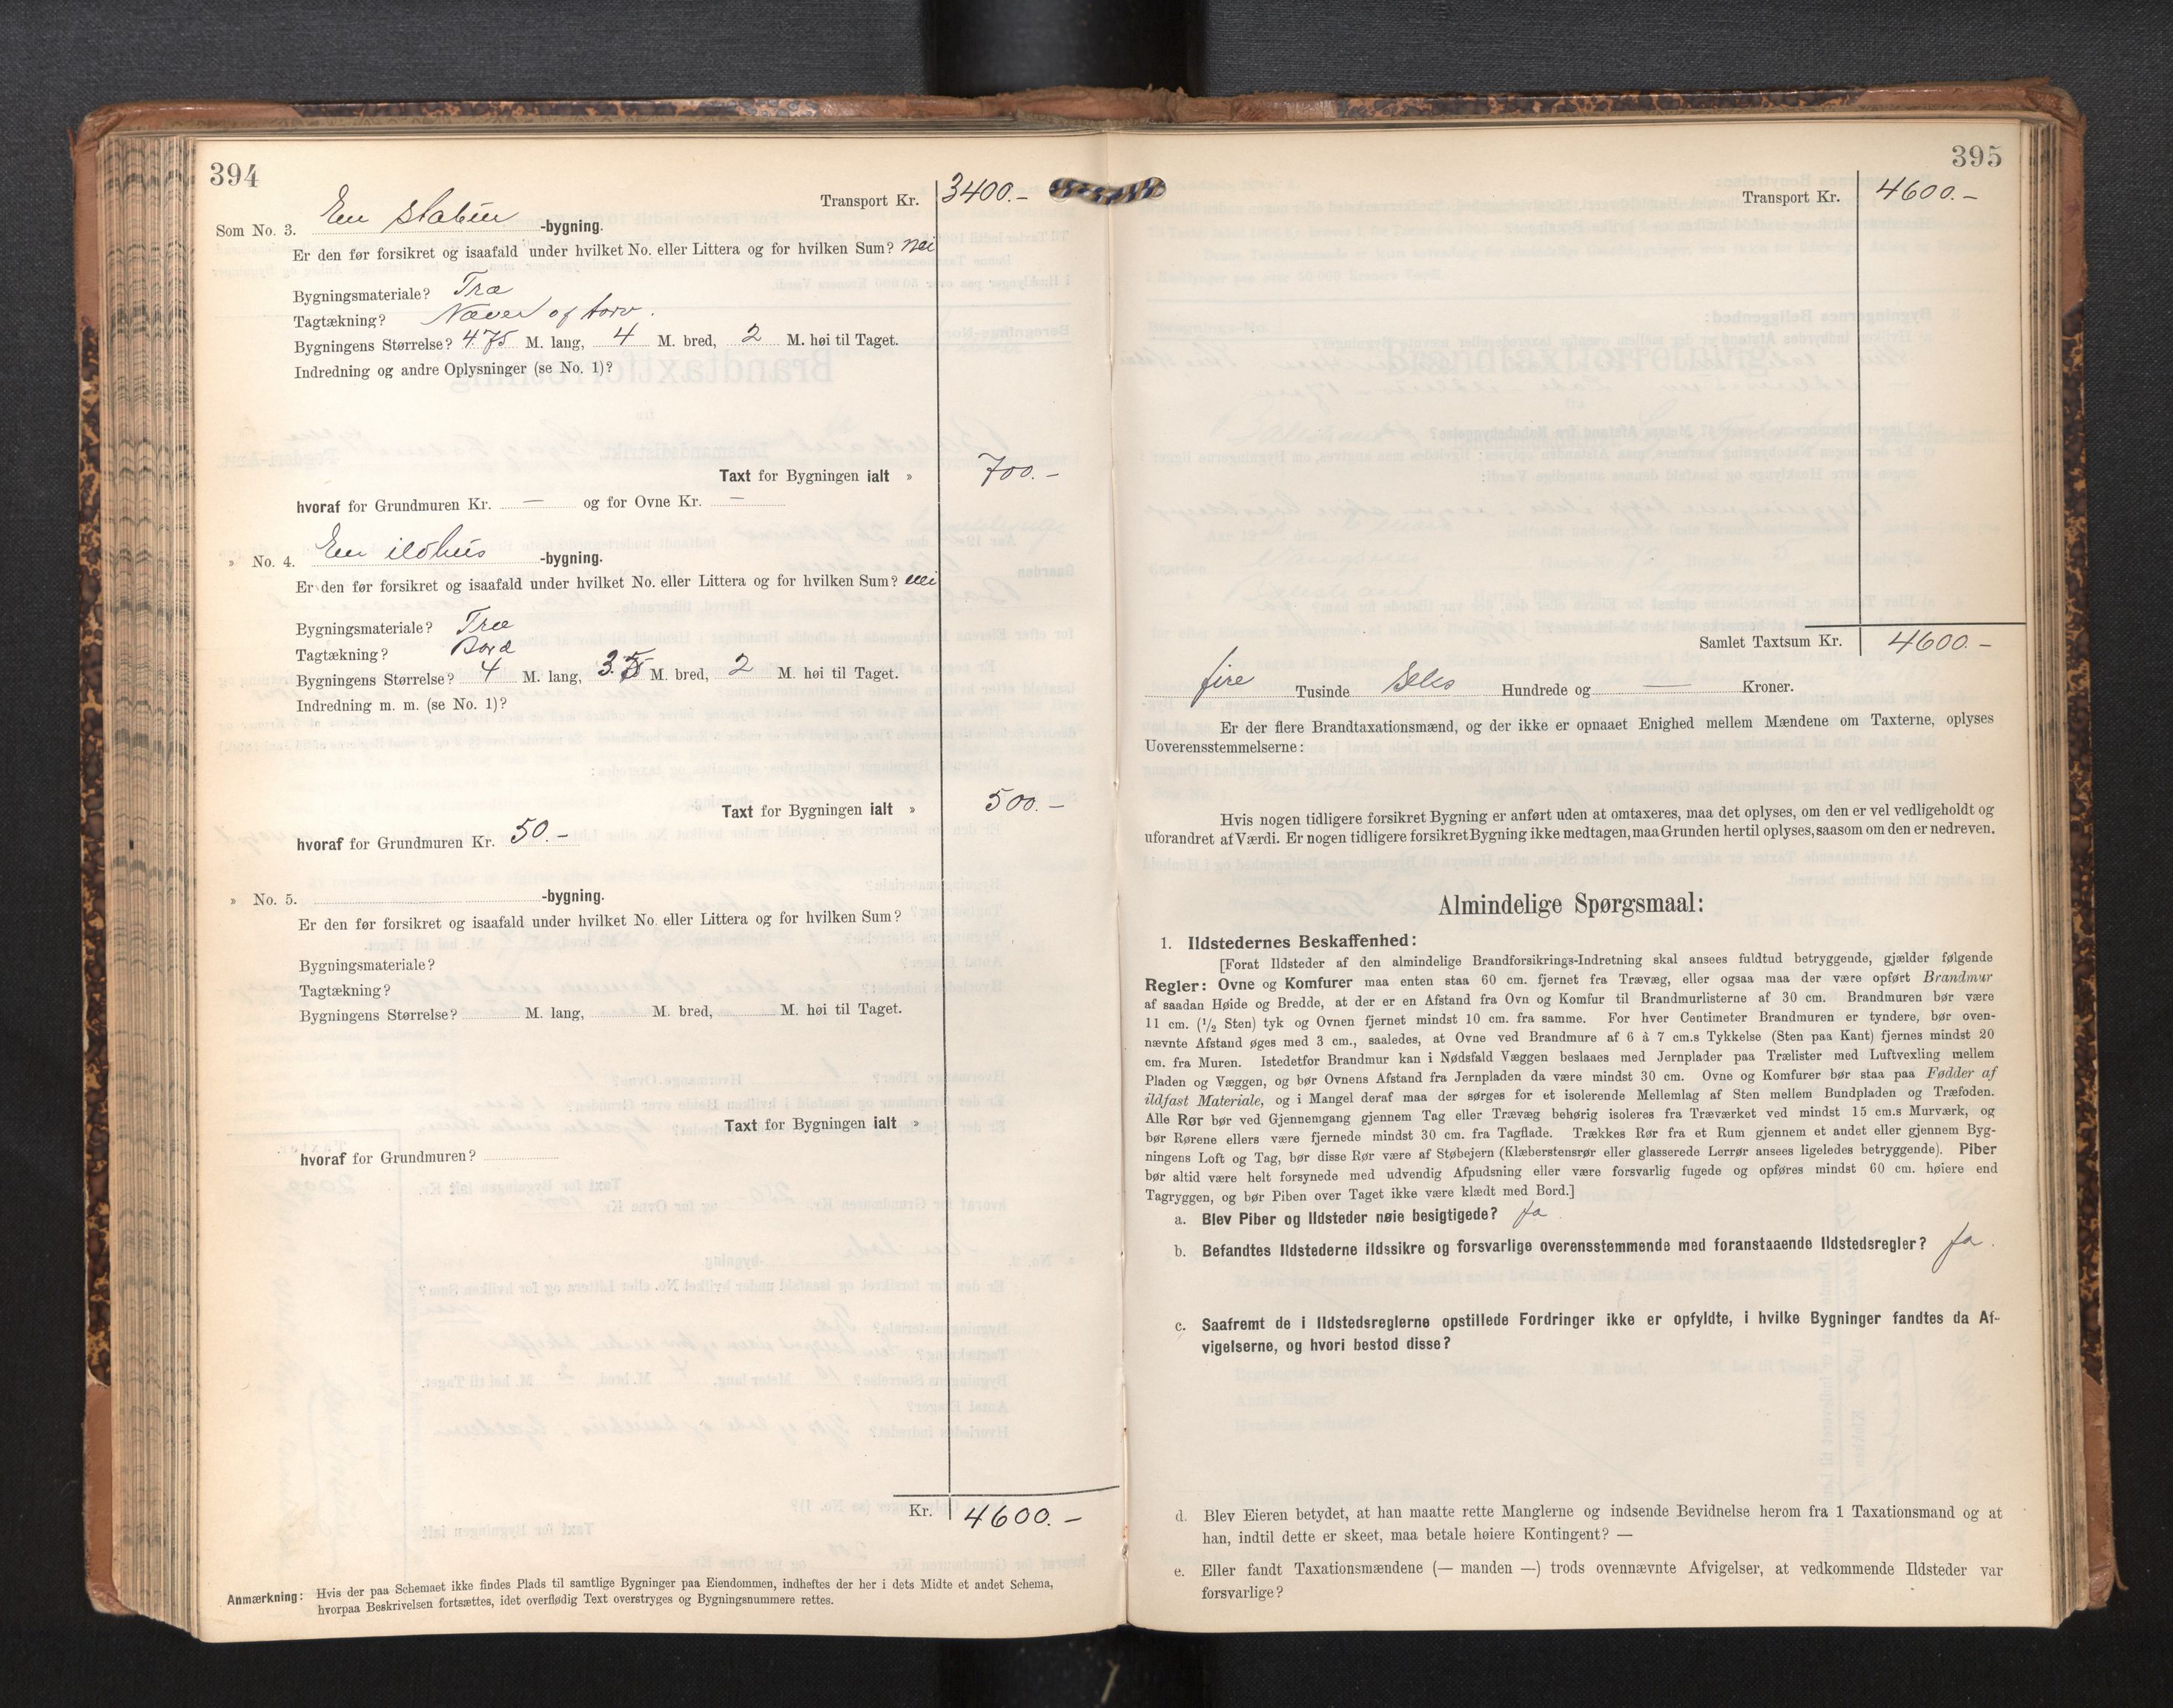 394
Transport Kr. 3400.-
Som No. 3. En stabur -bygning.
Er den før forsikret og isaafald under hvilket No. eller Littera og for hvilken Sum? nei
Bygningsmateriale? Træ
Tagtækning? Næver og torv.
Bygningens Størrelse? 4.75 M. lang, 4 M. bred, 2 M. høi til Taget.
Indredning og andre Oplysninger (se No. 1)?
Taxt for Bygningen ialt » 700.-
hvoraf for Grundmuren Kr. — og for Ovne Kr. —
» No. 4. En ildhus -bygning.
Er den før forsikret og isaafald under hvilket No. eller Littera og for hvilken Sum? nei
Bygningsmateriale? Træ
Tagtækning? Bord
Bygningens Størrelse? 4 M. lang, 3.75 M. bred, 2 M. høi til Taget.
Indredning m. m. (se No. 1)?
Taxt for Bygningen ialt » 500.-
hvoraf for Grundmuren Kr. 50.-
» No. 5. -bygning.
Er den før forsikret og isaafald under hvilket No. eller Littera og for hvilken Sum?
Bygningsmateriale?
Tagtækning?
Bygningens Størrelse? M. lang, M. bred, M. høi til Taget.
Taxt for Bygningen ialt »
hvoraf for Grundmuren?
Kr. 4600.-
Anmærkning: Hvis der paa Schemaet ikke findes Plads til samtlige Bygninger paa Eiendommen, indheftes der her i dets Midte et andet Schema,
hvorpaa Beskrivelsen fortsættes, idet overflødig Text overstryges og Bygningsnummere rettes.
395
Transport Kr. 4600.-
Samlet Taxtsum Kr. 4600.-
fire Tusinde seks Hundrede og — Kroner.
Er der flere Brandtaxationsmænd, og der ikke er opnaaet Enighed mellem Mændene om Taxterne, oplyses
Uoverensstemmelserne:
Hvis nogen tidligere forsikret Bygning er anført uden at omtaxeres, maa det oplyses, om den er vel vedligeholdt og
uforandret af Værdi. Er nogen tidligere forsikret Bygning ikke medtagen, maa Grunden hertil oplyses, saasom om den er nedreven.
Almindelige Spørgsmaal:
1. Ildstedernes Beskaffenhed:
[Forat Ildsteder af den almindelige Brandforsikrings-Indretning skal ansees fuldtud betryggende, gjælder følgende
Regler: Ovne og Komfurer maa enten staa 60 cm. fjernet fra Trævæg, eller ogsaa maa der være opført Brandmur
af saadan Høide og Bredde, at der er en Afstand fra Ovn og Komfur til Brandmurlisterne af 30 cm. Brandmuren bør være
11 cm. (1/2 Sten) tyk og Ovnen fjernet mindst 10 cm. fra samme. For hver Centimeter Brandmuren er tyndere, bør oven-
nævnte Afstand øges med 3 cm., saaledes, at Ovne ved Brandmure af 6 à 7 cm.s Tykkelse (Sten paa Kant) fjernes mindst 20
cm. fra Muren. Istedetfor Brandmur kan i Nødsfald Væggen beslaaes med Jernplader paa Trælister med Luftvexling mellem
Pladen og Væggen, og bør Ovnens Afstand fra Jernpladen da være mindst 30 cm. Ovne og Komfurer bør staa paa Fødder af
ildfast Materiale, og i Mangel deraf maa der sørges for et isolerende Mellemlag af Sten mellem Bundpladen og Træfoden.
Alle Rør bør ved Gjennemgang gjennem Tag eller Trævæg behørig isoleres fra Træværket ved mindst 15 cm.s Murværk, og
bør Rørene ellers være fjernede mindst 30 cm. fra Tagflade. Trækkes Rør fra et Rum gjennem et andet eller gjennem Byg-
ningens Loft og Tag, bør disse Rør være af Støbejern (Klæberstensrør eller glasserede Lerrør ansees ligeledes betryggende). Piber
bør altid være helt forsynede med udvendig Afpudsning eller være forsvarlig fugede og opføres mindst 60 cm. høiere end
Tagryggen, og bør Piben over Taget ikke være klædt med Bord.]
a. Blev Piber og Ildsteder nøie besigtigede? ja
b. Befandtes Ildstederne ildssikre og forsvarlige overensstemmende med foranstaaende Ildstedsregler? ja.
c. Saafremt de i Ildstedsreglerne opstillede Fordringer ikke er opfyldte, i hvilke Bygninger fandtes da Af-
vigelserne, og hvori bestod disse?
d. Blev Eieren betydet, at han maatte rette Manglerne og indsende Bevidnelse herom fra 1 Taxationsmand og at
han, indtil dette er skeet, maa betale høiere Kontingent? —
e. Eller fandt Taxationsmændene (— manden —) trods ovennævnte Afvigelser, at vedkommende Ildsteder var
forsvarlige?